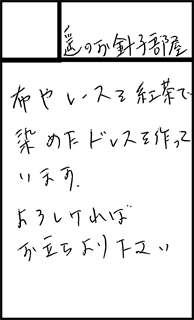 遥のお針子部屋
布やレースを紅茶で
染めたドレスを作って
います.
よろしければ
お立ちより下さい